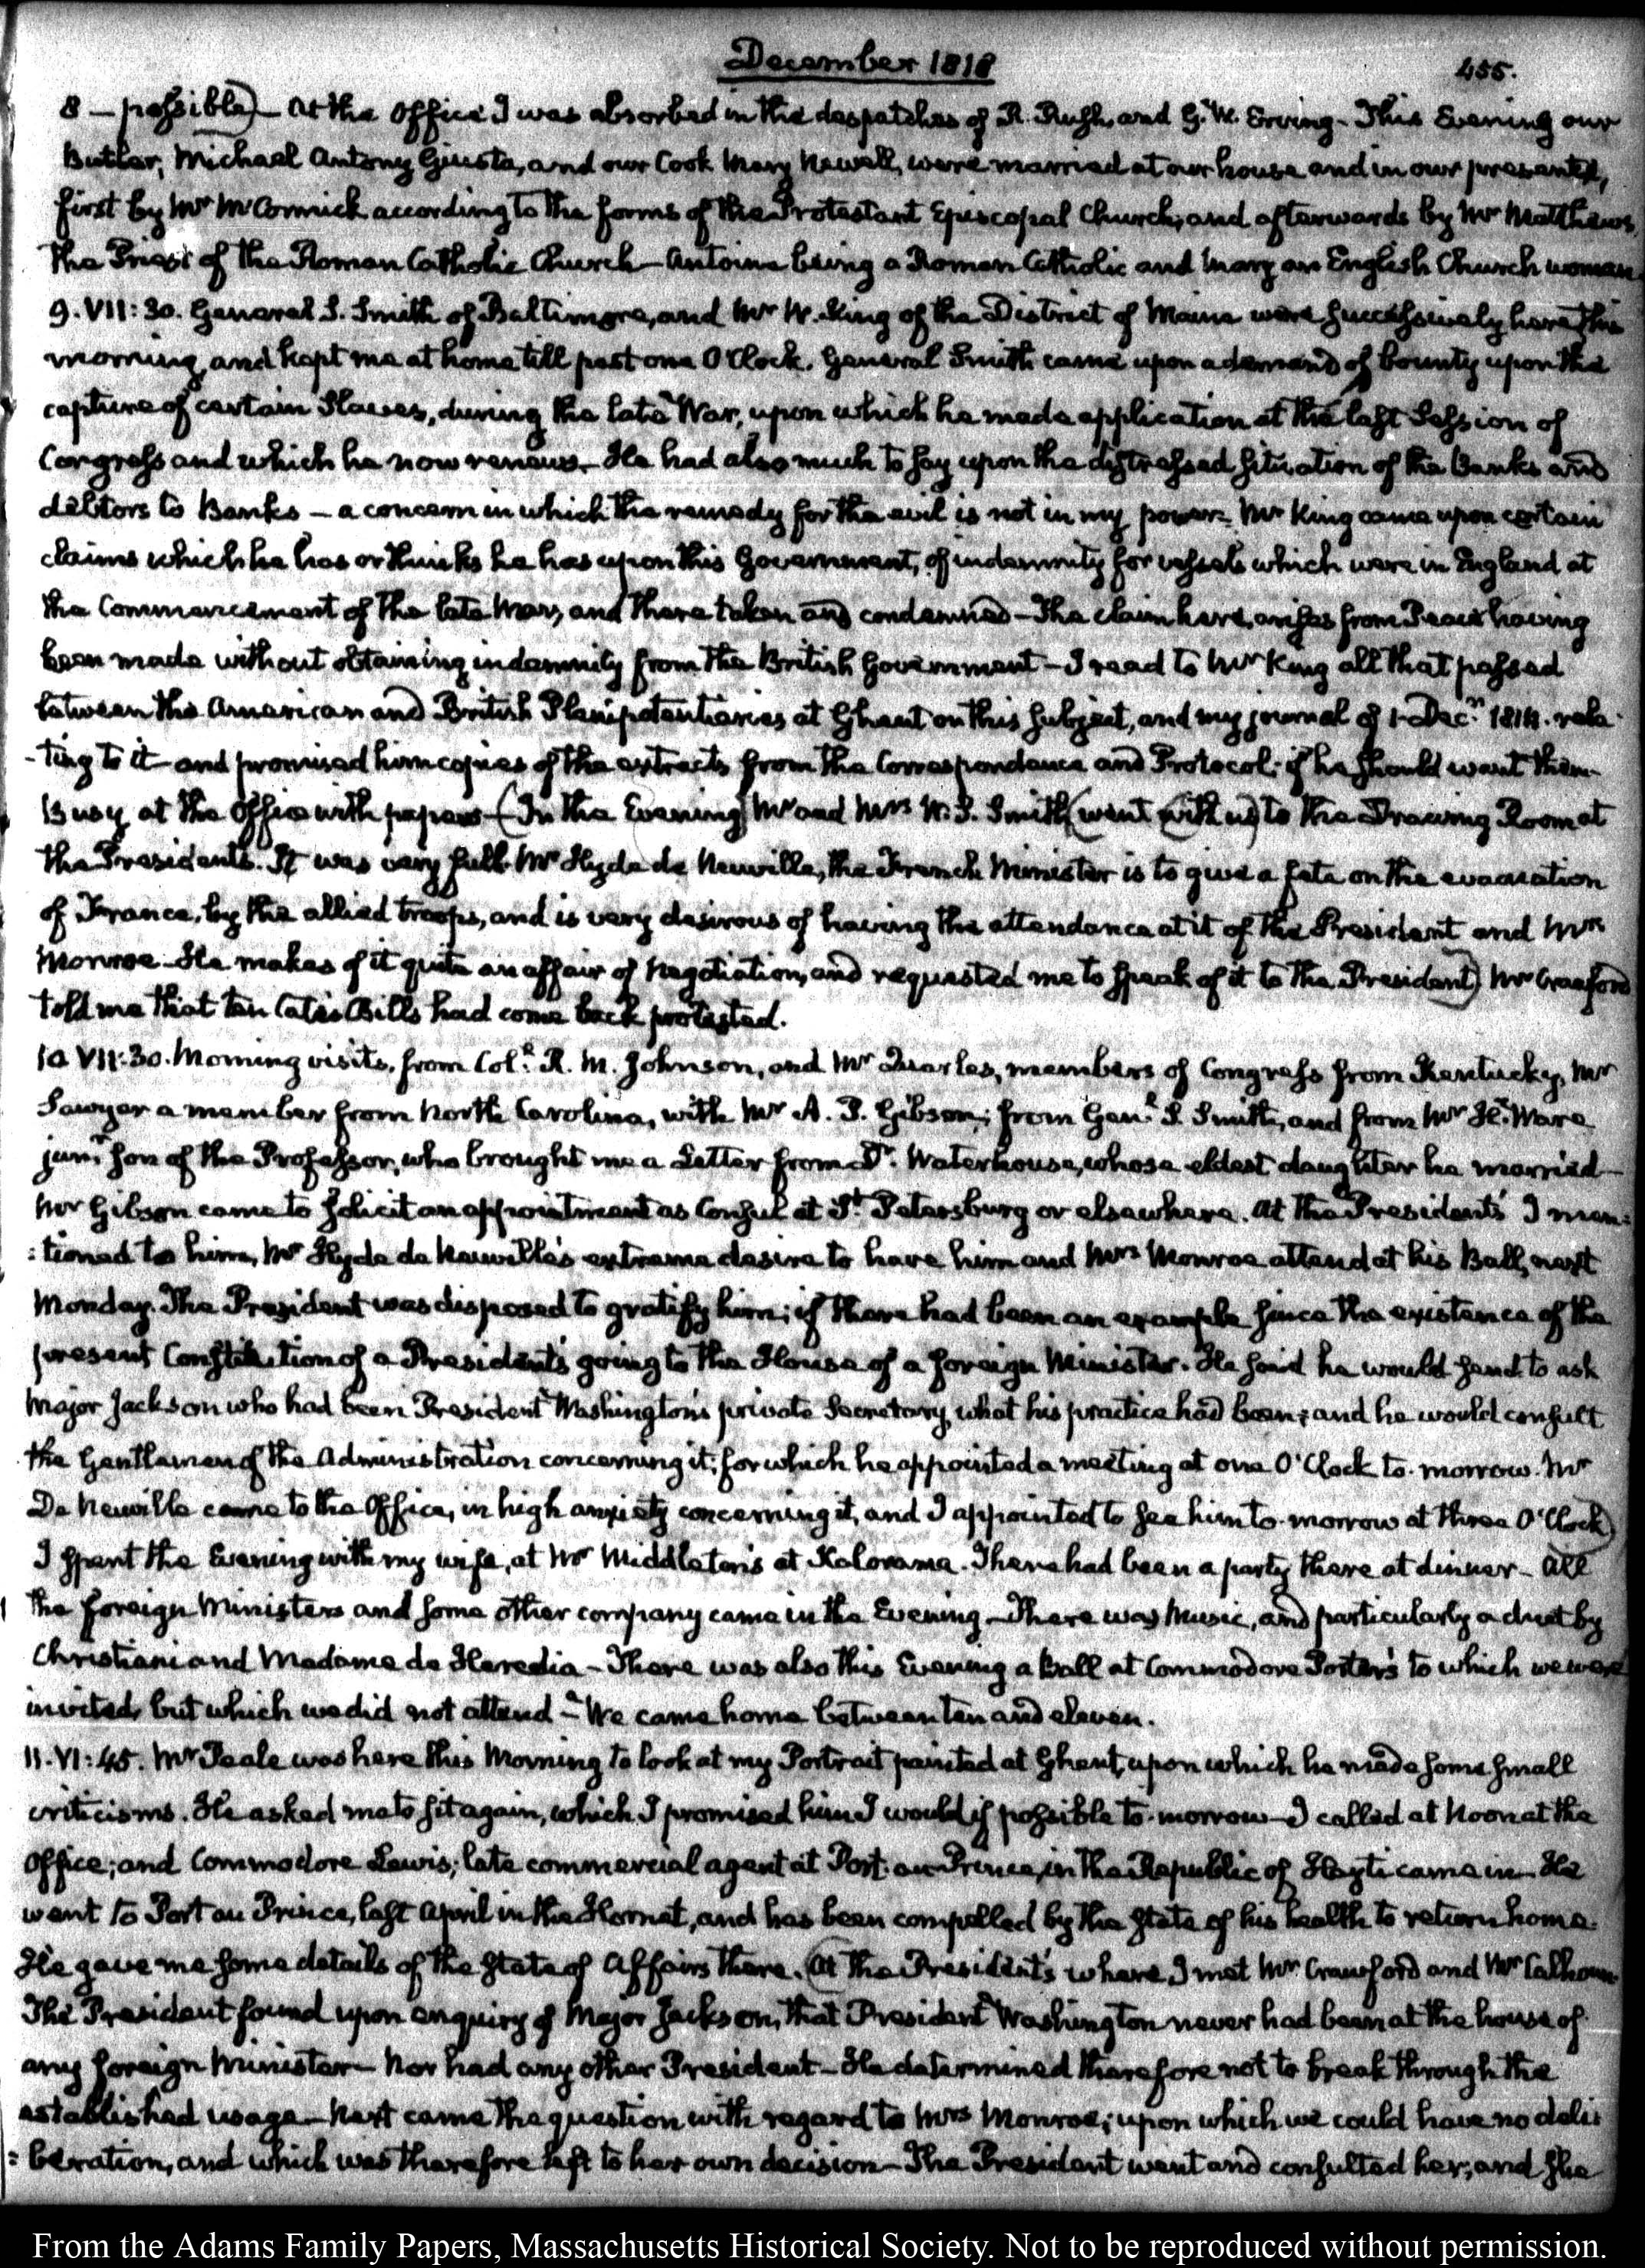 December 1818
455.
8 — possible) — At the Office I was absorbed in the despatches of R. Rush, and G. W. Erving — This Evening our
Butler, Michael Antony Giusta, and our Cook Mary Newell, were married at our house and in our presence,
first by Mr McCormick according to the forms of the Protestant Episcopal Church, and afterwards by Mr Matthews,
the Priest of the Roman Catholic Church — Antoine being a Roman Catholic and Mary an English Church woman
9. VII:30. General S. Smith of Baltimore, and Mr W. King of the District of Maine were successively here this
morning, and kept me at home till past one O'Clock. General Smith came upon a demand of bounty upon the
capture of certain Slaves, during the late War, upon which he made application at the last Session of
Congress and which he now renews. He had also much to say upon the distressed situation of the Banks and
debtors to Banks — a concern in which the remedy for the evil is not in my power. Mr King came upon certain
claims which he has or thinks he has upon this Government, of indemnity for vessels which were in England at
the Commencement of the late War, and there taken and condemned — The claim here, arises from Peace having
been made without obtaining indemnity from the British Government — I read to Mr King all that passed
between the American and British Plenipotentiaries at Ghent on this subject, and my journal of 1 Decr. 1814. rela-
-ting to it — and promised him copies of the extracts from the Correspondence and Protocol; if he should want them.
Busy at the Office with papers — (In the Evening) Mr and Mrs W. S. Smith (went (with us) to the Drawing Room at
the Presidents. It was very full. Mr Hyde de Neuville, the French Minister is to give a fete on the evacuation
of France, by the allied troops, and is very desirous of having the attendance at it of the President and Mrs
Monroe. He makes of it quite an affair of Negotiation, and requested me to speak of it to the President) Mr Crawford
told me that ten Cates Bills had come back protested.
10 VII:30. Morning visits, from Coll. R. M. Johnson, and Mr Quarles, members of Congress from Kentucky, Mr
Sawyer a member from North Carolina, with Mr A. P. Gibson; from Genl. S. Smith, and from Mr H. Ware
junr. son of the Professor, who brought me a Letter from Dr. Waterhouse, whose eldest daughter he married —
Mr Gibson came to solicit an appointment as Consul at St. Petersburg or elsewhere. At the President's I men-
:tioned to him, Mr Hyde de Neuville's extreme desire to have him and Mrs Monroe attend at his Ball, next
Monday. The President was disposed to gratify him; if there had been an example since the existence of the
present Constitution of a President's going to the House of a foreign Minister. He said he would send to ask
Major Jackson who had been President Washington's private Secretary, what his practice had been; and he would consult
the Gentlemen of the Administration concerning it; for which he appointed a meeting at one O'Clock to-morrow. Mr
De Neuville came to the Office, in high anxiety concerning it, and I appointed to see him to-morrow at three O'Clock)
I spent the Evening with my wife, at Mr Middleton's at Kalorama. There had been a party there at dinner — All
the foreign Ministers and some other company came in the Evening — There was Music, and particularly a duet by
Christiani and Madame de Heredia — There was also this Evening a Ball at Commodore Porter's to which we were
invited, but which we did not attend — We came home between ten and eleven.
11. VI:45. Mr Peale was here this Morning to look at my Portrait painted at Ghent, upon which he made some small
criticisms. He asked me to sit again, which I promised him I would if possible to-morrow — I called at Noon at the
Office; and Commodore Lewis; late commercial agent at Port-au-Prince, in the Republic of Hayti came in — He
went to Port au Prince, last April in the Hornet, and has been compelled by the state of his health to return home.
He gave me some details of the state of Affairs there. (At the President's where I met Mr Crawford and Mr Calhoun.
The President found upon enquiry of Major Jackson, that President Washington never had been at the house of
any foreign Minister — Nor had any other President — He determined therefore not to break through the
established usage — Next came the question with regard to Mrs Monroe; upon which we could have no deli:
:beration, and which was therefore left to her own decision — The President went and consulted her; and she
From the Adams Family Papers, Massachusetts Historical Society. Not to be reproduced without permission.